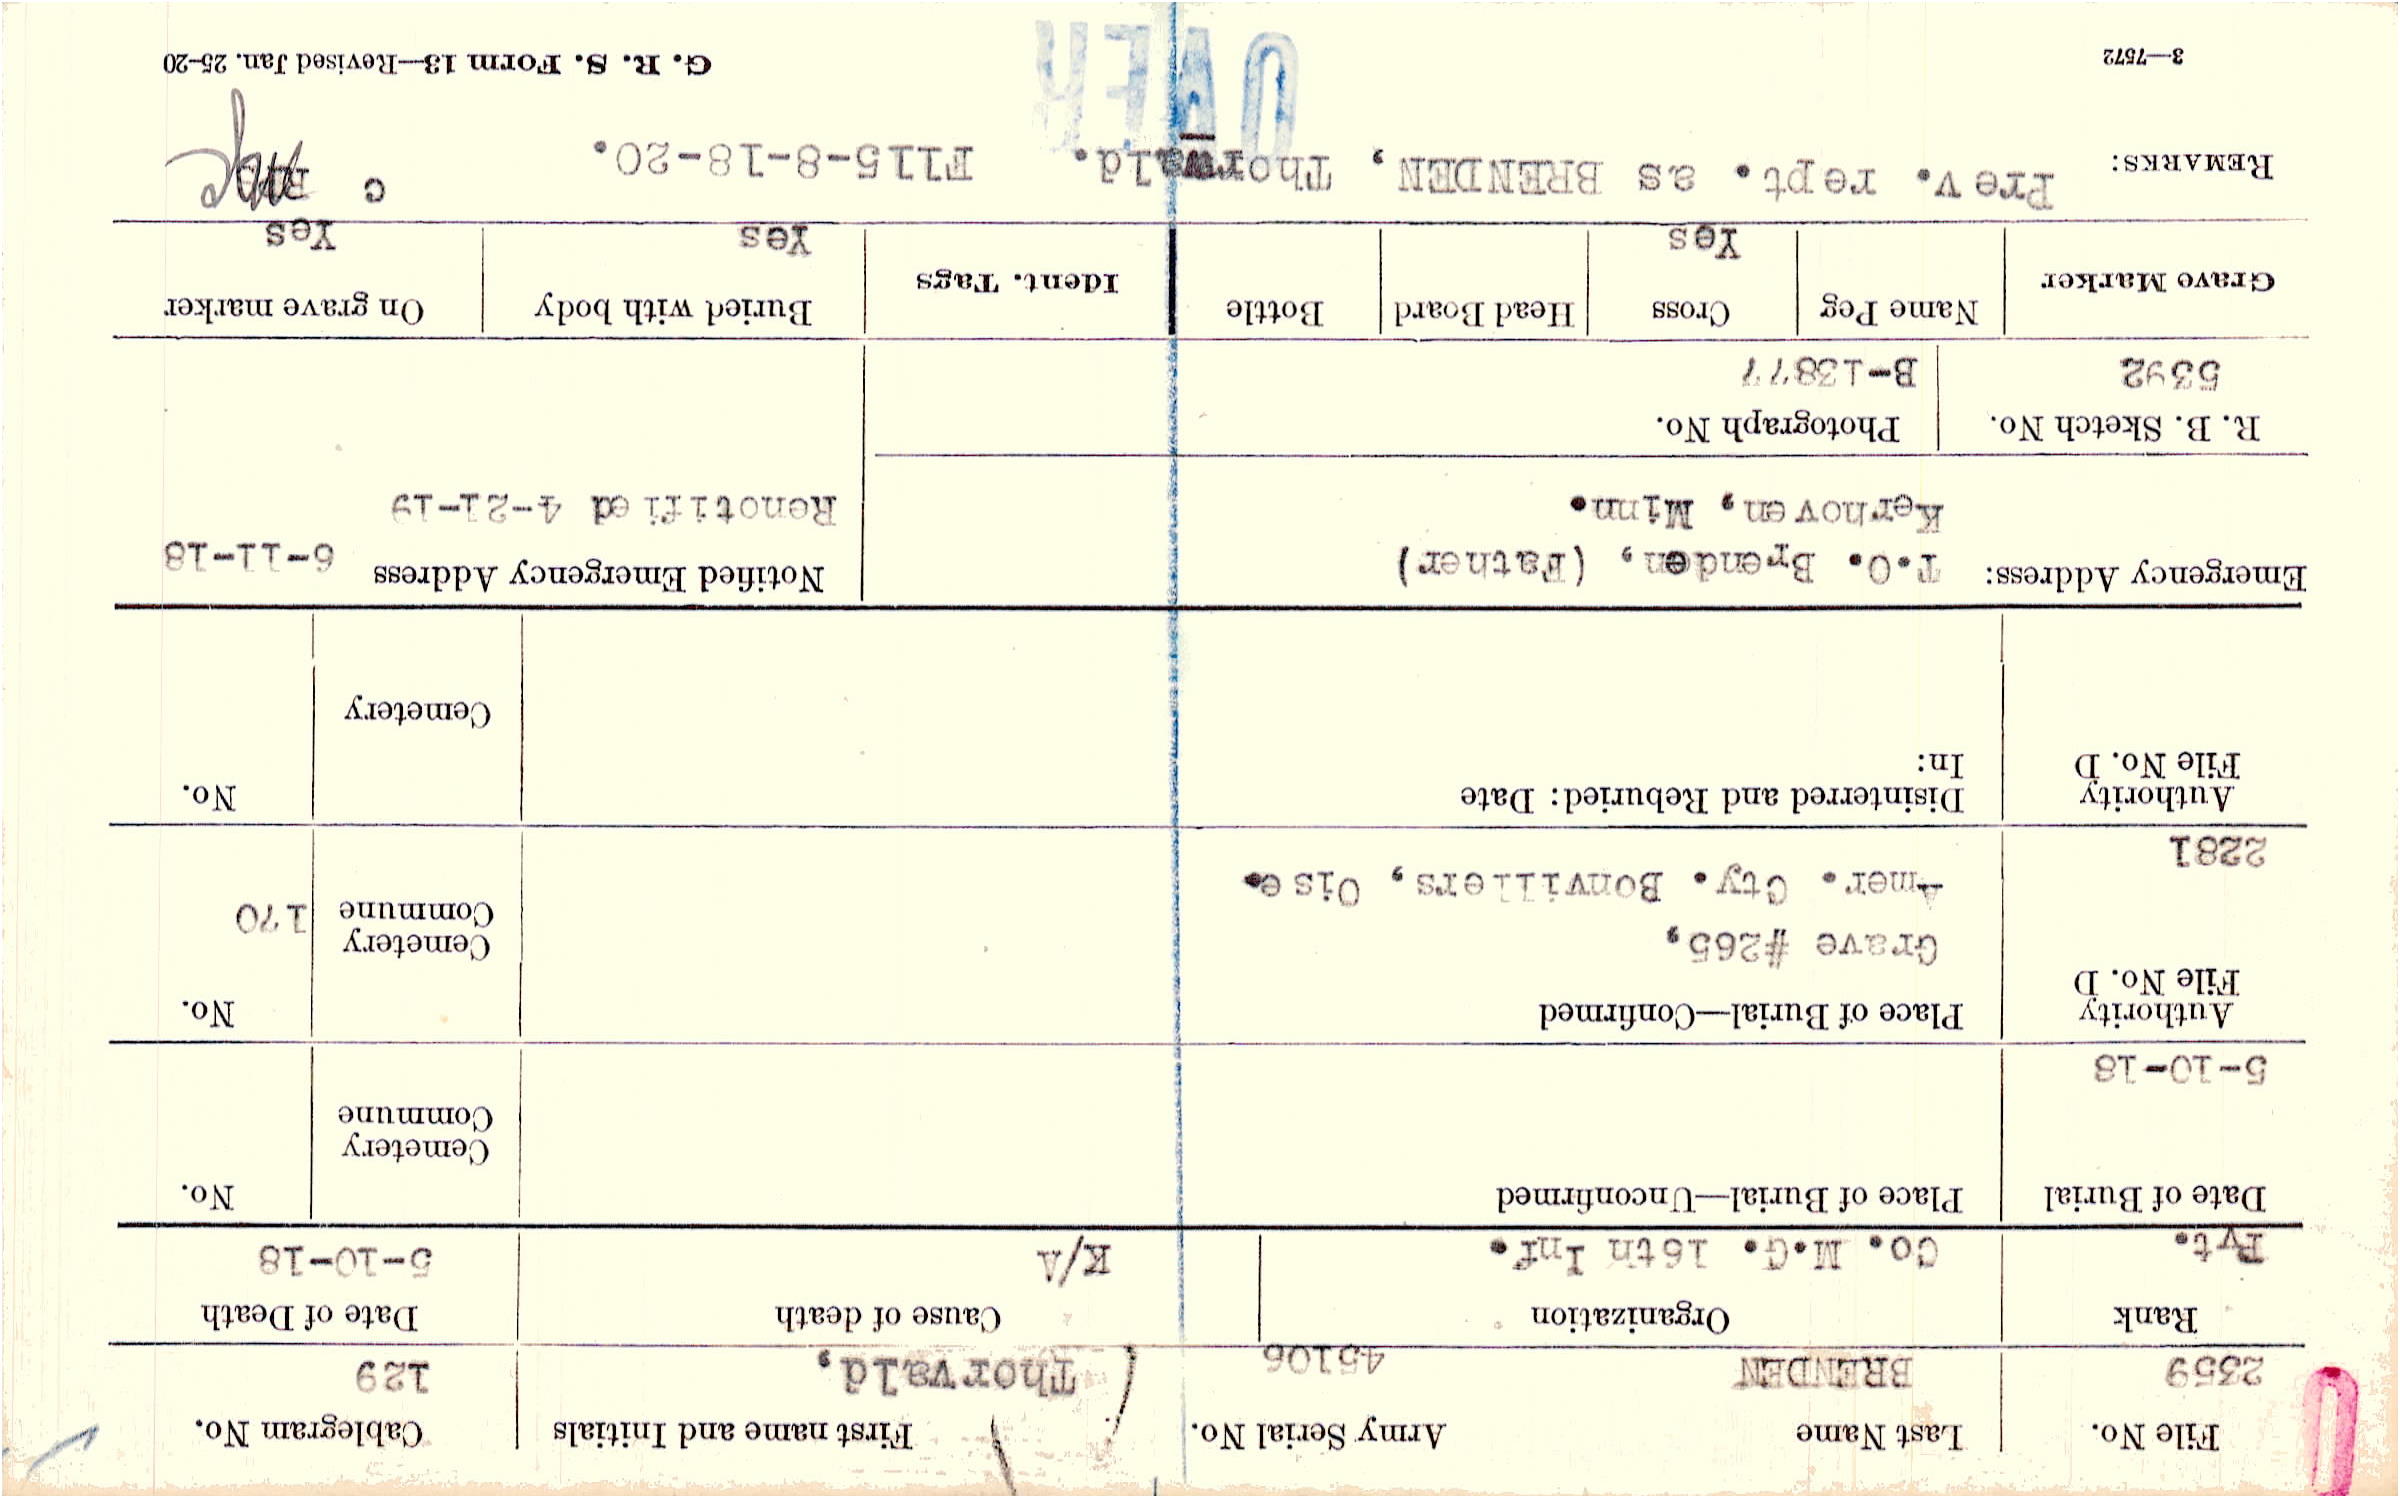 File No. Last Name Army Serial No. First name and Initials Cablegram No.
2359 BRENDEN 45106 Thorvald, 129
Rank Organization Cause of death Date of Death
Pvt. Co. M.G. 16th Inf. K/A 5-10-18
Date of Burial Place of Burial—Unconfirmed No.
Cemetery
Commune
5-10-18
Authority Place of Burial—Confirmed No.
File No. D
Grave #265, Cemetery
Commune 170
Amer. Cty. Bonvillers, Oise.
2281
Authority Disinterred and Reburied: Date No.
File No. D In:
Cemetery
Emergency Address: T.O. Brenden, (Father) Notified Emergency Address 6-11-18
Kerhoven, Minn. Renotified 4-21-19
R. B. Sketch No. Photograph No.
5392 B-13877
Grave Marker Name Peg Cross Head Board Bottle Ident. Tags Buried with body On grave marker
Yes Yes Yes
REMARKS: Prev. rept. as BRENDEN, Thorwald. F115-8-18-20. C
OVER
3—7572 G. R. S. Form 13—Revised Jan. 25-20